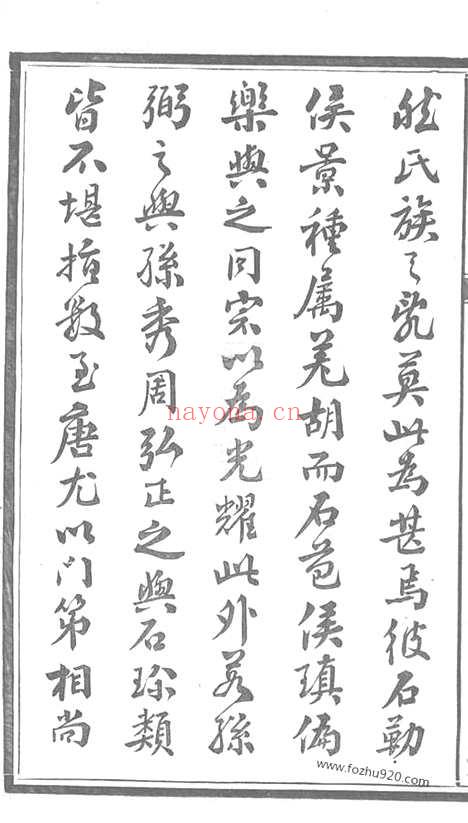 然氏族之乱莫此為甚焉彼石勒
侯景種属羌胡而石苞侯瑱俩
樂與之同宗以為光耀此外若孫
弼之與孫秀周弘正之與石珎類
皆不堪指数至唐尤以门第相尚
nayona.cn
www.fozhu920.com